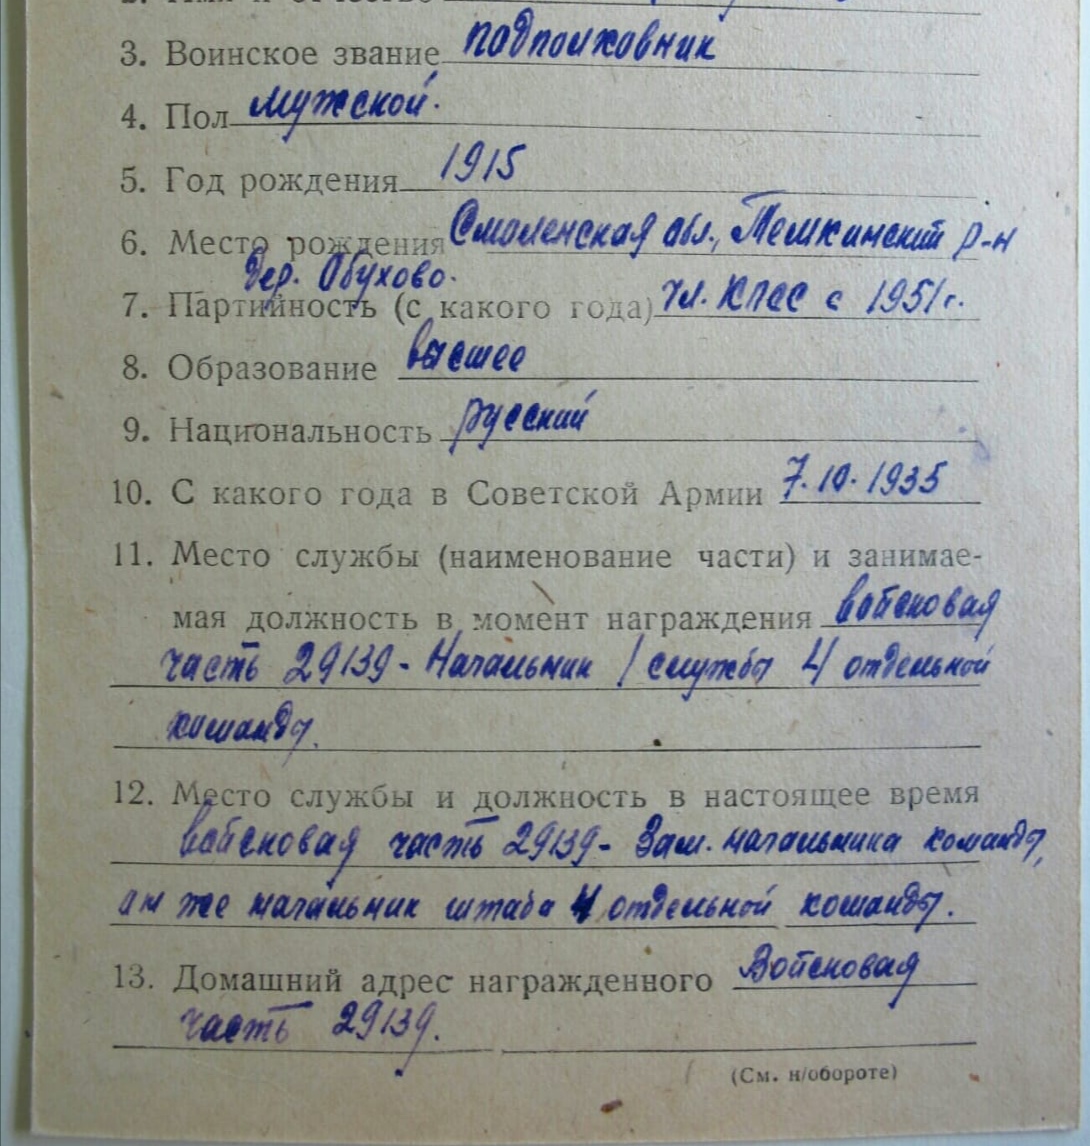 3. Воинское звание подполковник
4. Пол мужской.
5. Год рождения 1915
6. Место рождения Смоленская обл., Темкинский р-н
дер. Обухово.
7. Партийность (с какого года) чл. КПСС с 1951 г.
8. Образование высшее
9. Национальность русский
10. С какого года в Советской Армии 7.10.1935
11. Место службы (наименование части) и занимае-
мая должность в момент награждения войсковая
часть 29139 - Начальник / службы 4 отдельной
команды.
12. Место службы и должность в настоящее время
войсковая часть 29139 - Зам. начальника команды,
он же начальник штаба 4 отдельной команды.
13. Домашний адрес награжденного Войсковая
часть 29139.
(См. н/обороте)